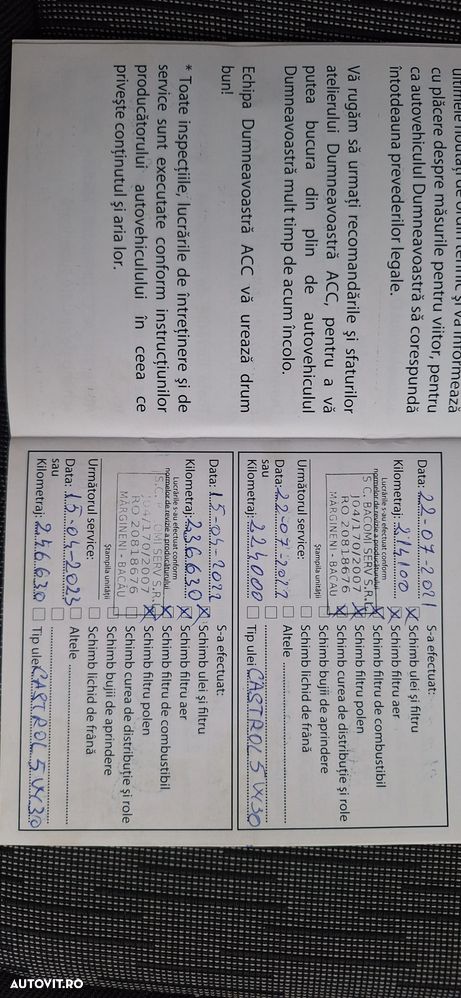 ultimele noutăți de ordin tehnic și vă informează
cu plăcere despre măsurile pentru viitor, pentru
ca autovehiculul Dumneavoastră să corespundă
întotdeauna prevederilor legale.
Vă rugăm să urmați recomandările și sfaturilor
atelierului Dumneavoastră ACC, pentru a vă
putea bucura din plin de autovehiculul
Dumneavoastră mult timp de acum încolo.
Echipa Dumneavoastră ACC vă urează drum
bun!
* Toate inspecțiile, lucrările de întreținere și de
service sunt executate conform instrucțiunilor
producătorului autovehiculului în ceea ce
privește conținutul și aria lor.
Data: 22-07-2021
Kilometraj: 214100
Lucrările s-au efectuat conform
normelor de revizie a producătorului
S.C. BACOMI SERV S.R.L.
J04/170/2007
RO 20818676
MARGINENI - BACAU
Ștampila unității
Următorul service:
Data: 22-07-2022
sau
Kilometraj: 224000
S-a efectuat:
X Schimb ulei și filtru
Schimb filtru aer
X Schimb filtru de combustibil
X Schimb filtru polen
X Schimb curea de distribuție și role
Schimb bujii de aprindere
Schimb lichid de frână
Altele
Tip ulei CASTROL 5W30
Data: 15-04-2022
Kilometraj: 236630
Lucrările s-au efectuat conform
normelor de revizie a producătorului
S.C. BACOMI SERV S.R.L.
J04/170/2007
RO 20818676
MARGINENI - BACAU
Ștampila unității
Următorul service:
Data: 15-04-2023
sau
Kilometraj: 246630
S-a efectuat:
X Schimb ulei și filtru
X Schimb filtru aer
X Schimb filtru de combustibil
X Schimb filtru polen
Schimb curea de distribuție și role
Schimb bujii de aprindere
Schimb lichid de frână
Altele
Tip ulei CASTROL 5W30
AUTOVIT.RO